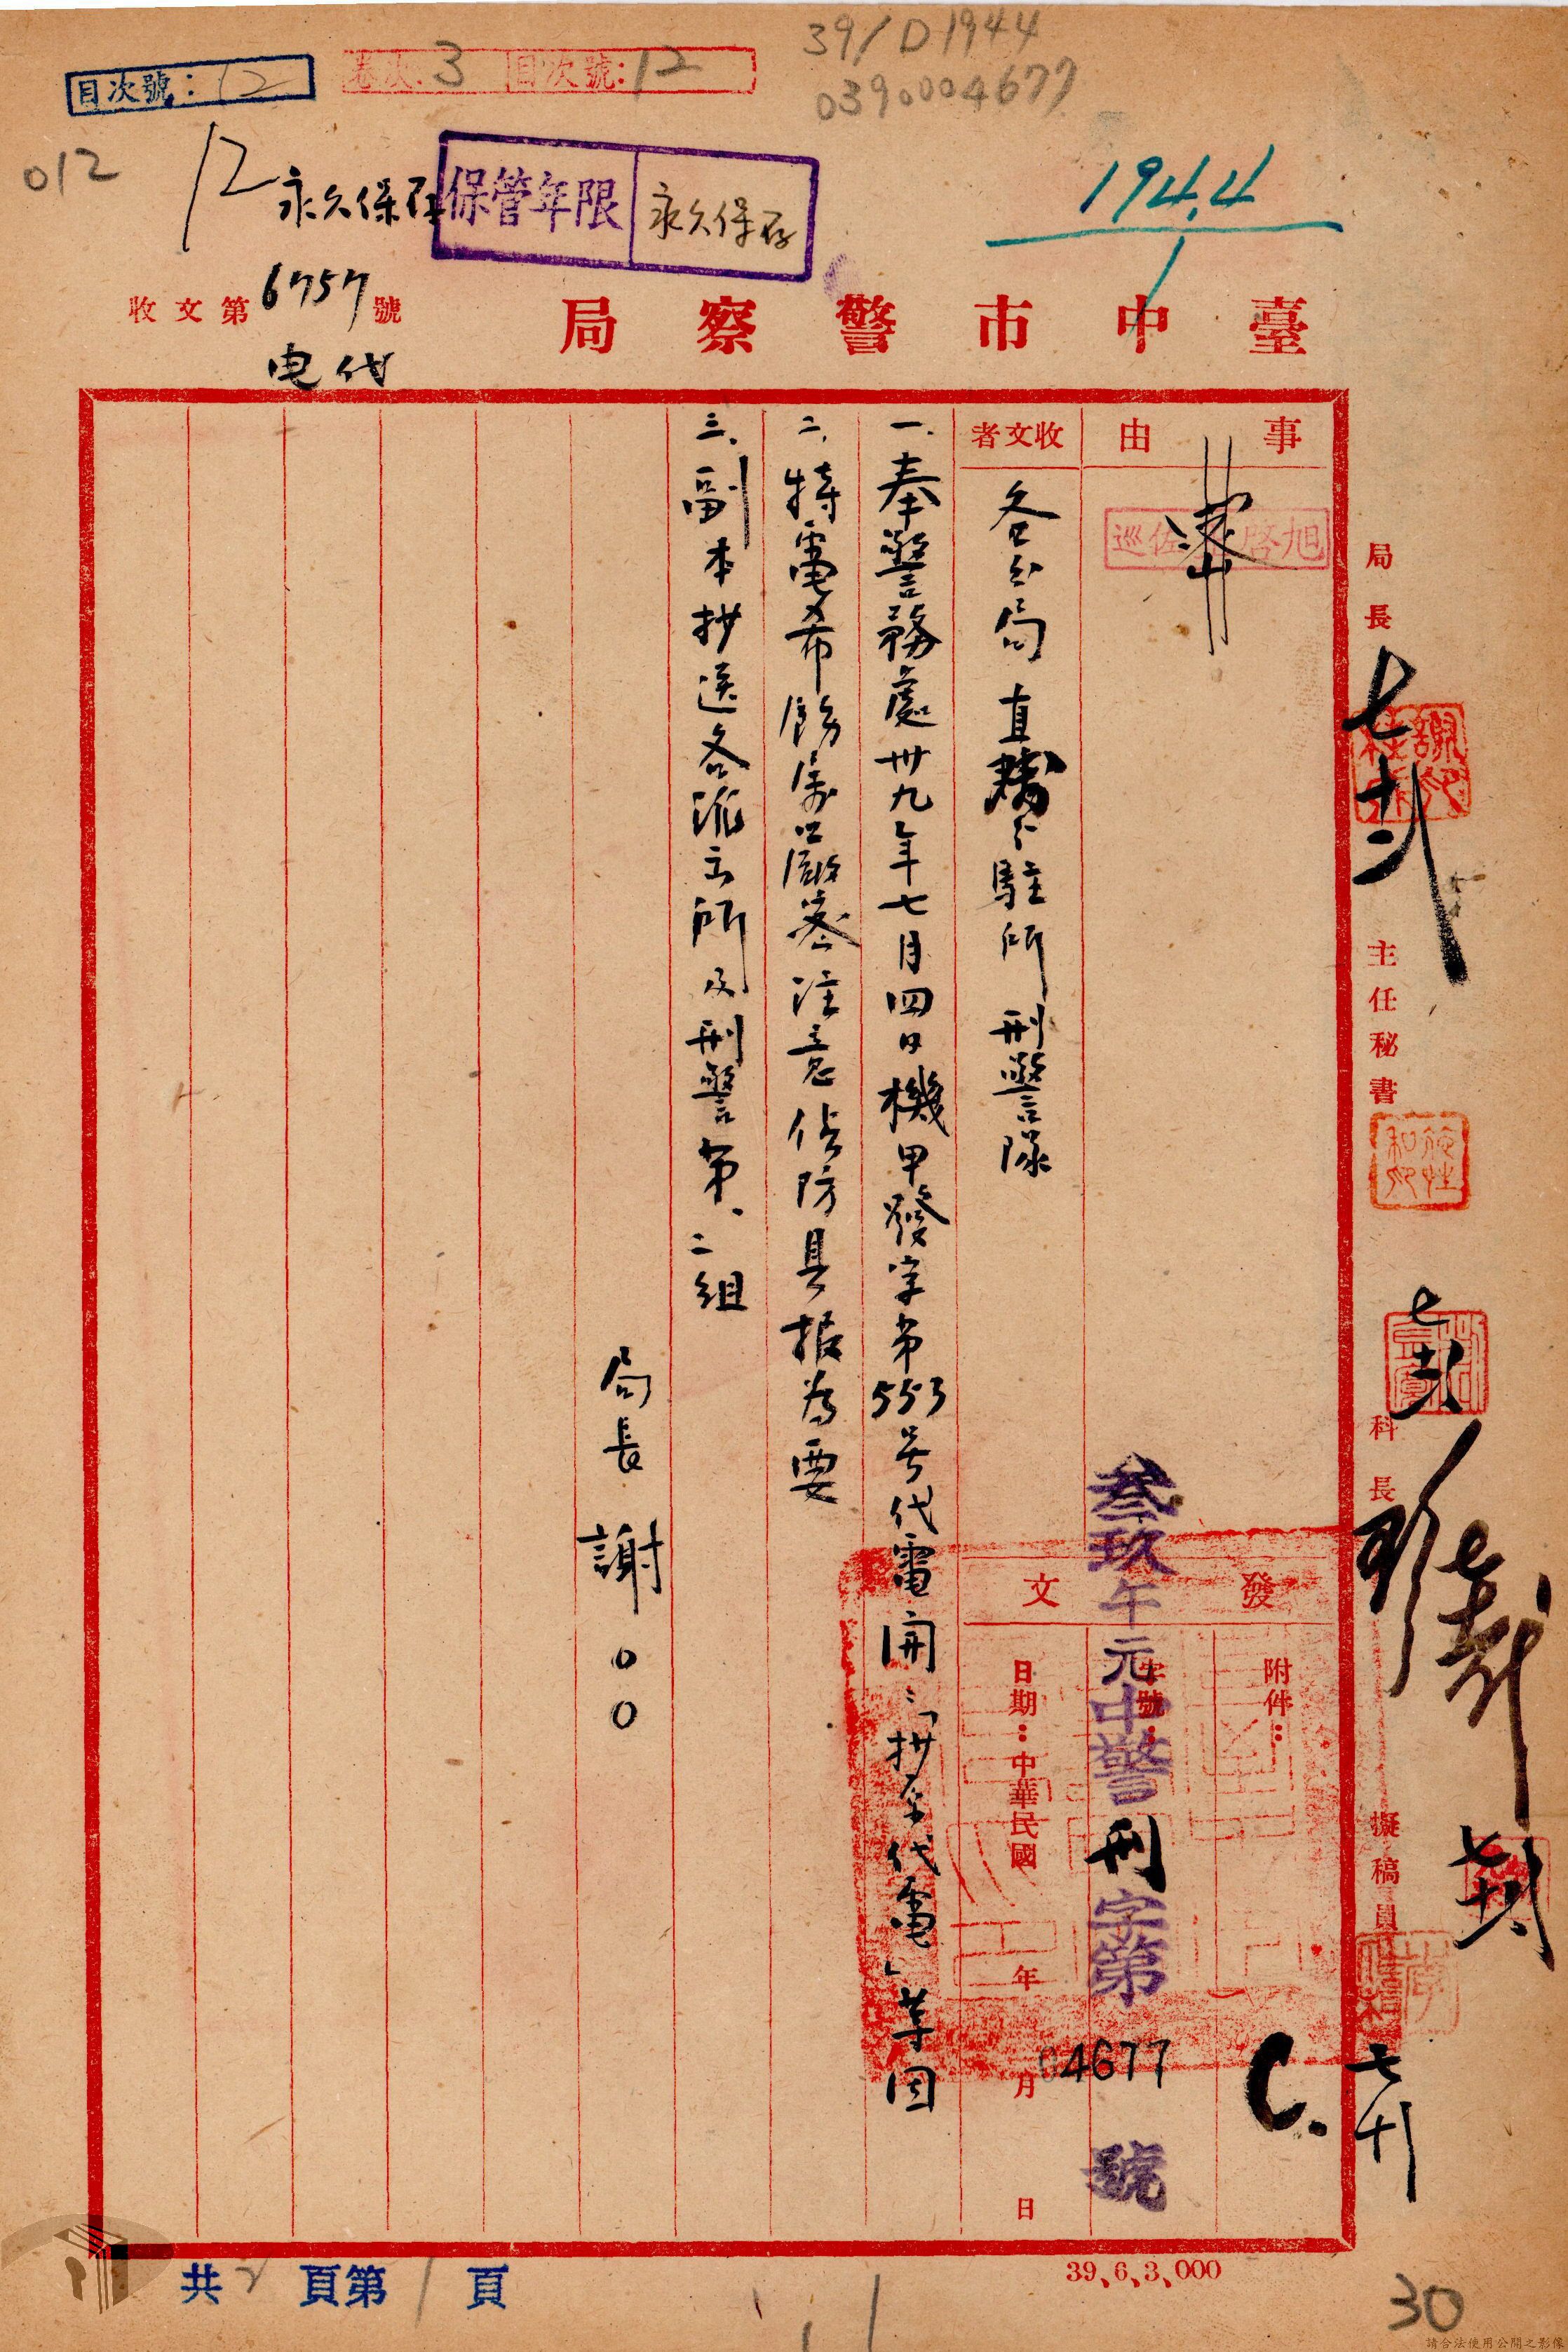 39/D1944
0390004677
目次號：12
卷次：3 目次號：12
012
12
永久保存
保管年限 永久保存
194.4
1
收文第6757號
电代
臺中市警察局
事由
收文者
各分局 直轄分駐所 刑警隊
一、奉警務處卅九年七月四日機甲發字第553号代電開：「抄原代電」等因
二、特電希飭屬嚴密注意偵防具报為要
三、副本抄送各派出所及刑警第一、二組
局長 謝○○
發文
附件：
字號：
叁玖午元中警刑字第04677號
日期：中華民國 年 月 日
C.
局長
主任秘書
科長
擬稿員
共2頁第1頁
39、6、3,000
30
請合法使用公開之影像